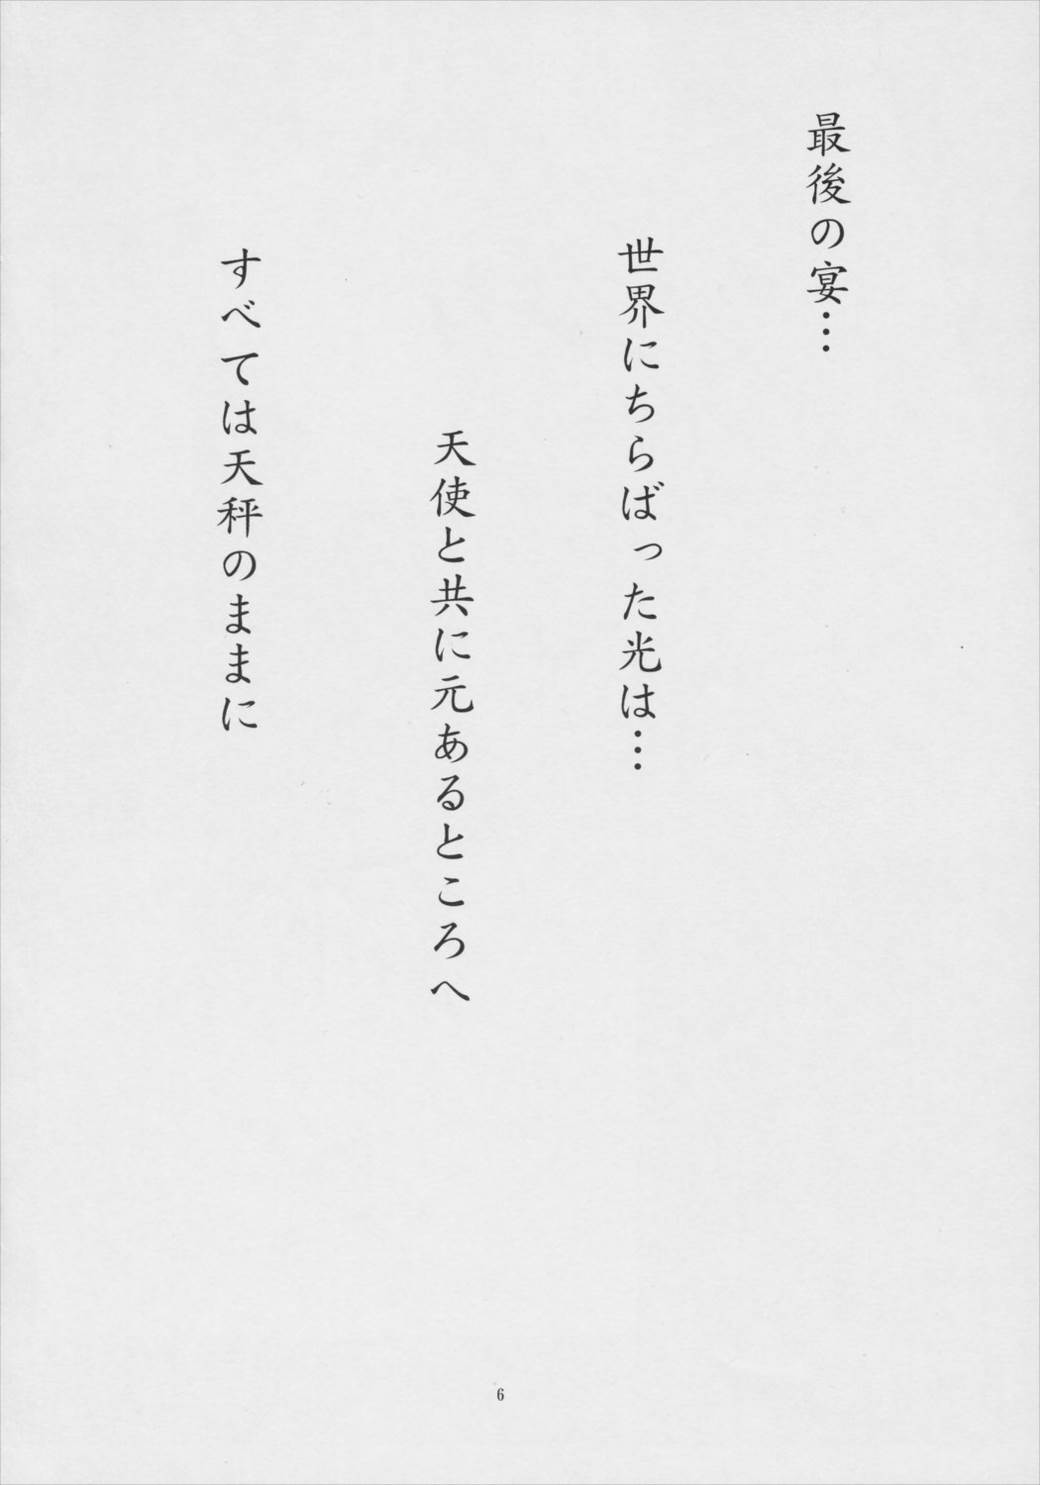 最後の宴…
世界にちらばった光は…
天使と共に元あるところへ
すべては天秤のままに
6